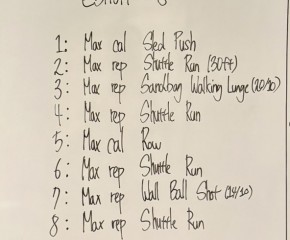 1: Max cal Sled Push
2: Max rep Shuttle Run (30ft)
3: Max rep Sandbag Walking Lunge
4: Max rep Shuttle Run
5: Max cal Row
6: Max rep Shuttle Run
7: Max rep Wall Ball Shot
8: Max rep Shuttle Run